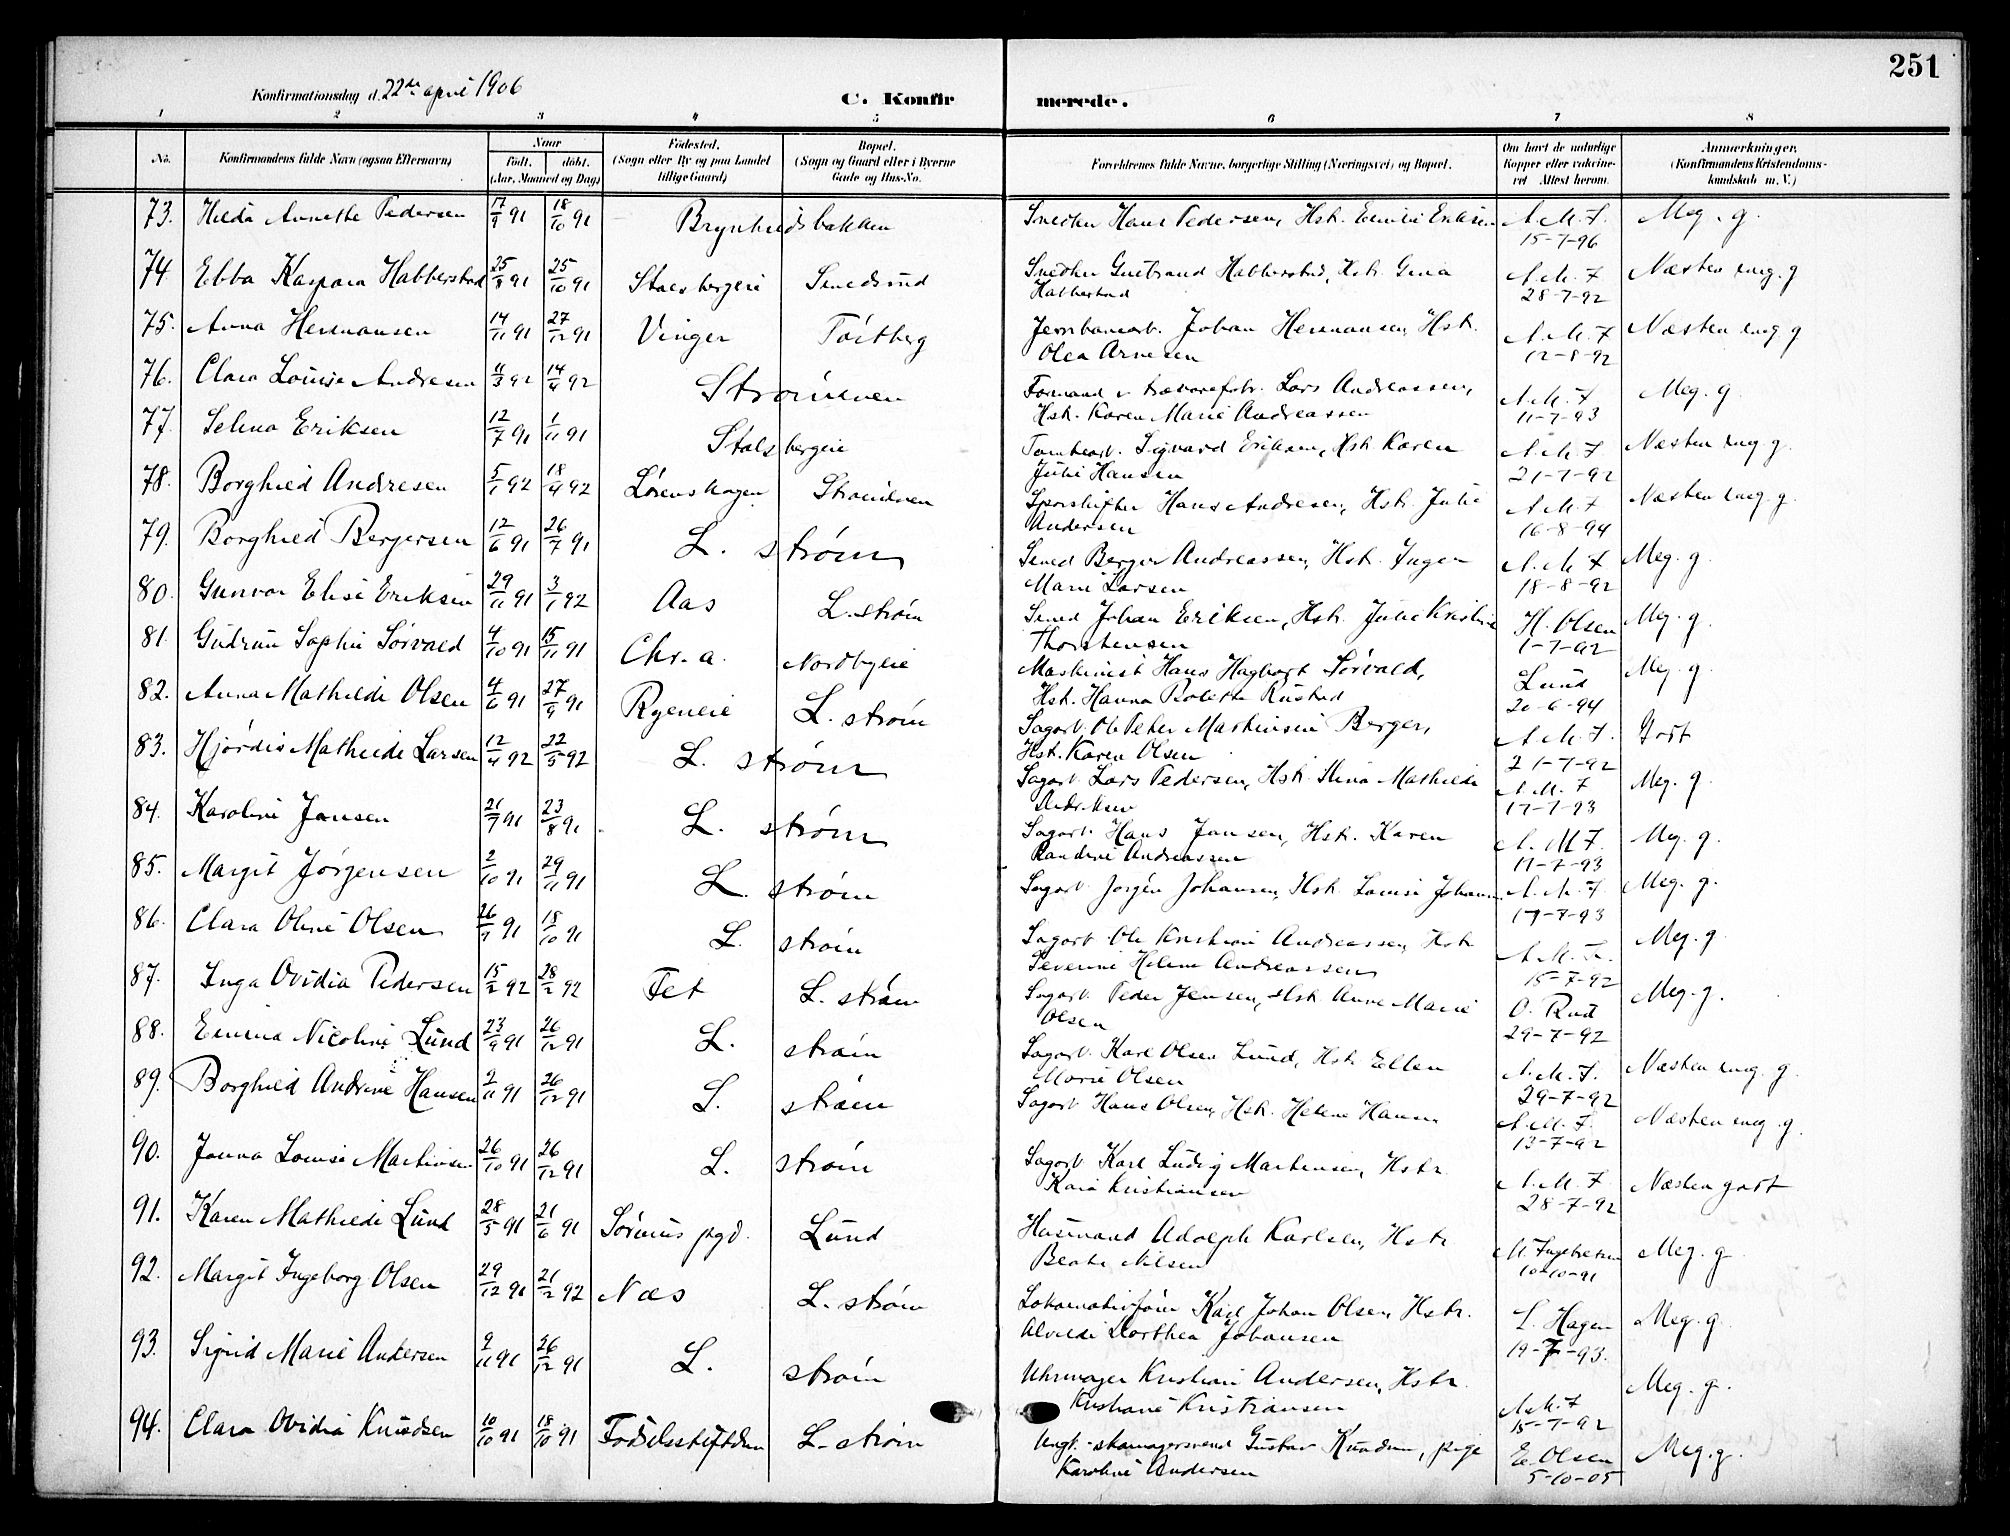 251
Konfirmationsdag d. 22de april 1906
C. Konfirmerede.
1 2 3 4 5 6 7 8
No. Konfirmandens fulde Navn (ogsaa Efternavn) Naar födt. döbt. (Aar, Maaned og Dag) Födested. (Sogn eller By og paa Landet tillige Gaard) Bopæl. (Sogn og Gaard eller i Byerne Gade og Hus-No. Forældrenes fulde Navne, borgerlige Stilling (Næringsvei) og Bopæl. Om havt de naturlige Kopper eller vaccineret. Attest herom. Anmærkninger. (Konfirmandens Kristendomskundskab m. V.)
73. Hilda Annette Pedersen 17/9 91 18/10 91 Brynhildsbakken Snedker Hans Pedersen, Hst. Emilie Eriksen A. M. F. 15-7-96 Meg. g.
74 Ebba Kaspara Habberstad 25/8 91 25/10 91 Stalsbergeie Snedker Gulbrand Habberstad, Hst. Gina Habberstad A. M. F 28-7-92 Næsten meg. g
75. Anna Hermansen 14/11 91 27/12 91 Vinger Jernbanearb. Johan Hermansen, Hst. Olea Arnesen A. M. F 12-8-92 Næsten meg g
76. Clara Louise Andresen 11/3 92 14/4 92 Strömmen Formand v trævarefabr. Lars Andreassen, Hst. Karen Marie Andreassen A. M. F 11-7-93 Meg. g.
77. Selma Eriksen 12/7 91 1/11 91 Stalsbergeie Tomtearb. Sigvard Eriksen, Hst Karen Julie Hansen A. M. F 21-7-92 Næsten meg g.
78. Borghild Andresen 5/1 92 18/4 92 Lørenskogen Strømmen Sporskifter Hans Andresen, Hst. Julie Andersen A. M. F 16-8-94 Næsten meg. g.
79. Borghild Bergersen 12/6 91 26/7 91 L. ström Smed Berger Andreassen, Hst. Inger Marie Larsen A. M. F 18-8-92 Meg. g.
80. Gunvor Elise Eriksen 29/11 91 3/1 92 Aas L. ström Smed Johan Eriksen, Hst. Julie Kristine Thorstensen H. Olsen 1-7-92 Meg. g.
81. Gudrun Sophie Sörvald 4/10 91 15/11 91 Chr.a. Nordbyeie Maskinist Hans Hagbart Sörvald, Hst. Hanna Bolette Rustad Lund 20-6-94 Meg. g.
82. Anna Mathilde Olsen 4/6 91 27/9 91 Ryeneie L. ström Sagarb. Ole Peter Martinsen Berger, Hst. Karen Olsen A. M. F. 21-7-92 Godt
83. Hjördis Mathilde Larsen 12/4 92 22/5 92 L. ström Sagarb. Lars Pedersen, Hst. Stina Mathilde A. M. F 17-7-93 Meg. g.
84. Karoline Jansen 21/7 91 23/8 91 L. ström Sagarb. Hans Jansen, Hst. Karen Randine Andreassen A. M F. 17-7-93 Meg. g.
85. Margit Jörgensen 2/10 91 29/11 91 L. ström Sagarb. Jørgen Johansen, Hst Louise Johansen A. M. F 17-7-93 Meg. g.
86. Clara Oline Olsen 26/9 91 18/10 91 L. ström Sagarb. Ole Kristian Andreassen, Hst. Severine Helene Andreassen A. M. F. 15-7-92 Meg. g
87. Inga Ovidia Pedersen 15/2 92 28/2 92 Fet L. ström Sagarb. Peder Jensen, Hst. Anne Marie Olsen O. Rud 29-7-92 Meg. g.
88. Emma Nicoline Lund 23/9 91 26/12 91 L. ström Sagarb. Karl Olsen Lund, Hst. Ellen Marie Olsen A. M. F. 29-7-92 Næsten meg. g.
89. Borghild Andrine Hansen 2/11 91 26/12 91 L. ström Sagarb Hans Olsen, Hst. Helene Hansen A. M. F. 13-7-92 Næsten meg. g.
90. Janna Louise Martinsen 26/10 91 26/12 91 L. ström Sagarb. Karl Ludvig Martinsen, Hstr. Kristiansen A. M. F 28-7-92 Næsten godt
91. Karen Mathilde Lund 28/5 91 21/6 91 Sörums pgd. Lund Husmand Adolph Karlsen, Hstr Beate Nilsen 10-10-91 Meg. g.
92. Margit Ingeborg Olsen 29/12 91 21/2 92 Næs L. ström Lokomotivförer Karl Johan Olsen, Hstr. Alvilde Dorthea Johansen L. Hagen 19-7-93. Meg. g.
93. Sigrid Marie Andersen 2/11 91 26/12 91 L. ström Uhrmager Kristian Andersen, Hstr. Kristiane Kristiansen A. M. F 15-7-92 Meg. g.
94. Clara Ovidia Knudsen 10/10 91 18/10 91 Födselsstiftelsen L. ström Ungk.-skomagersvend Gustav Knudsen, pige Karoline Andersen E. Olsen 5-10-05 Meg. g.